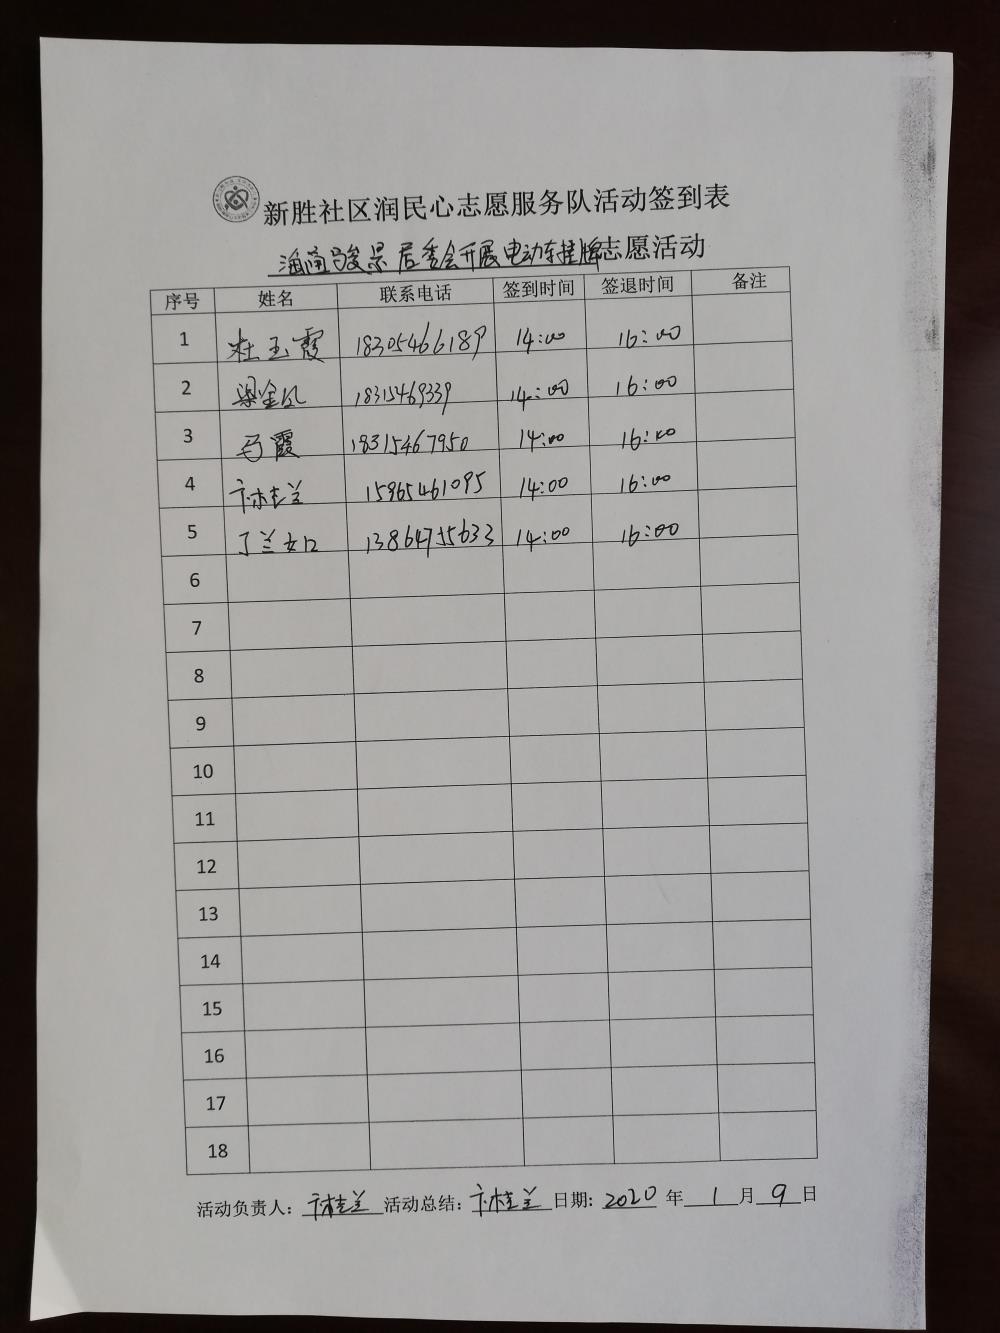 新胜社区润民心志愿服务队活动签到表
海通骏景居委会开展电动车挂牌志愿活动
序号 姓名 联系电话 签到时间 签退时间 备注
1 杜玉霞 18305466189 14:00 16:00
2 梁金凤 18315469339 14:00 16:00
3 马霞 18315467950 14:00 16:00
4 卞桂兰 15965461095 14:00 16:00
5 丁兰女口 13864755633 14:00 16:00
6
7
8
9
10
11
12
13
14
15
16
17
18
活动负责人：卞桂兰 活动总结：卞桂兰 日期：2020 年 1 月 9 日